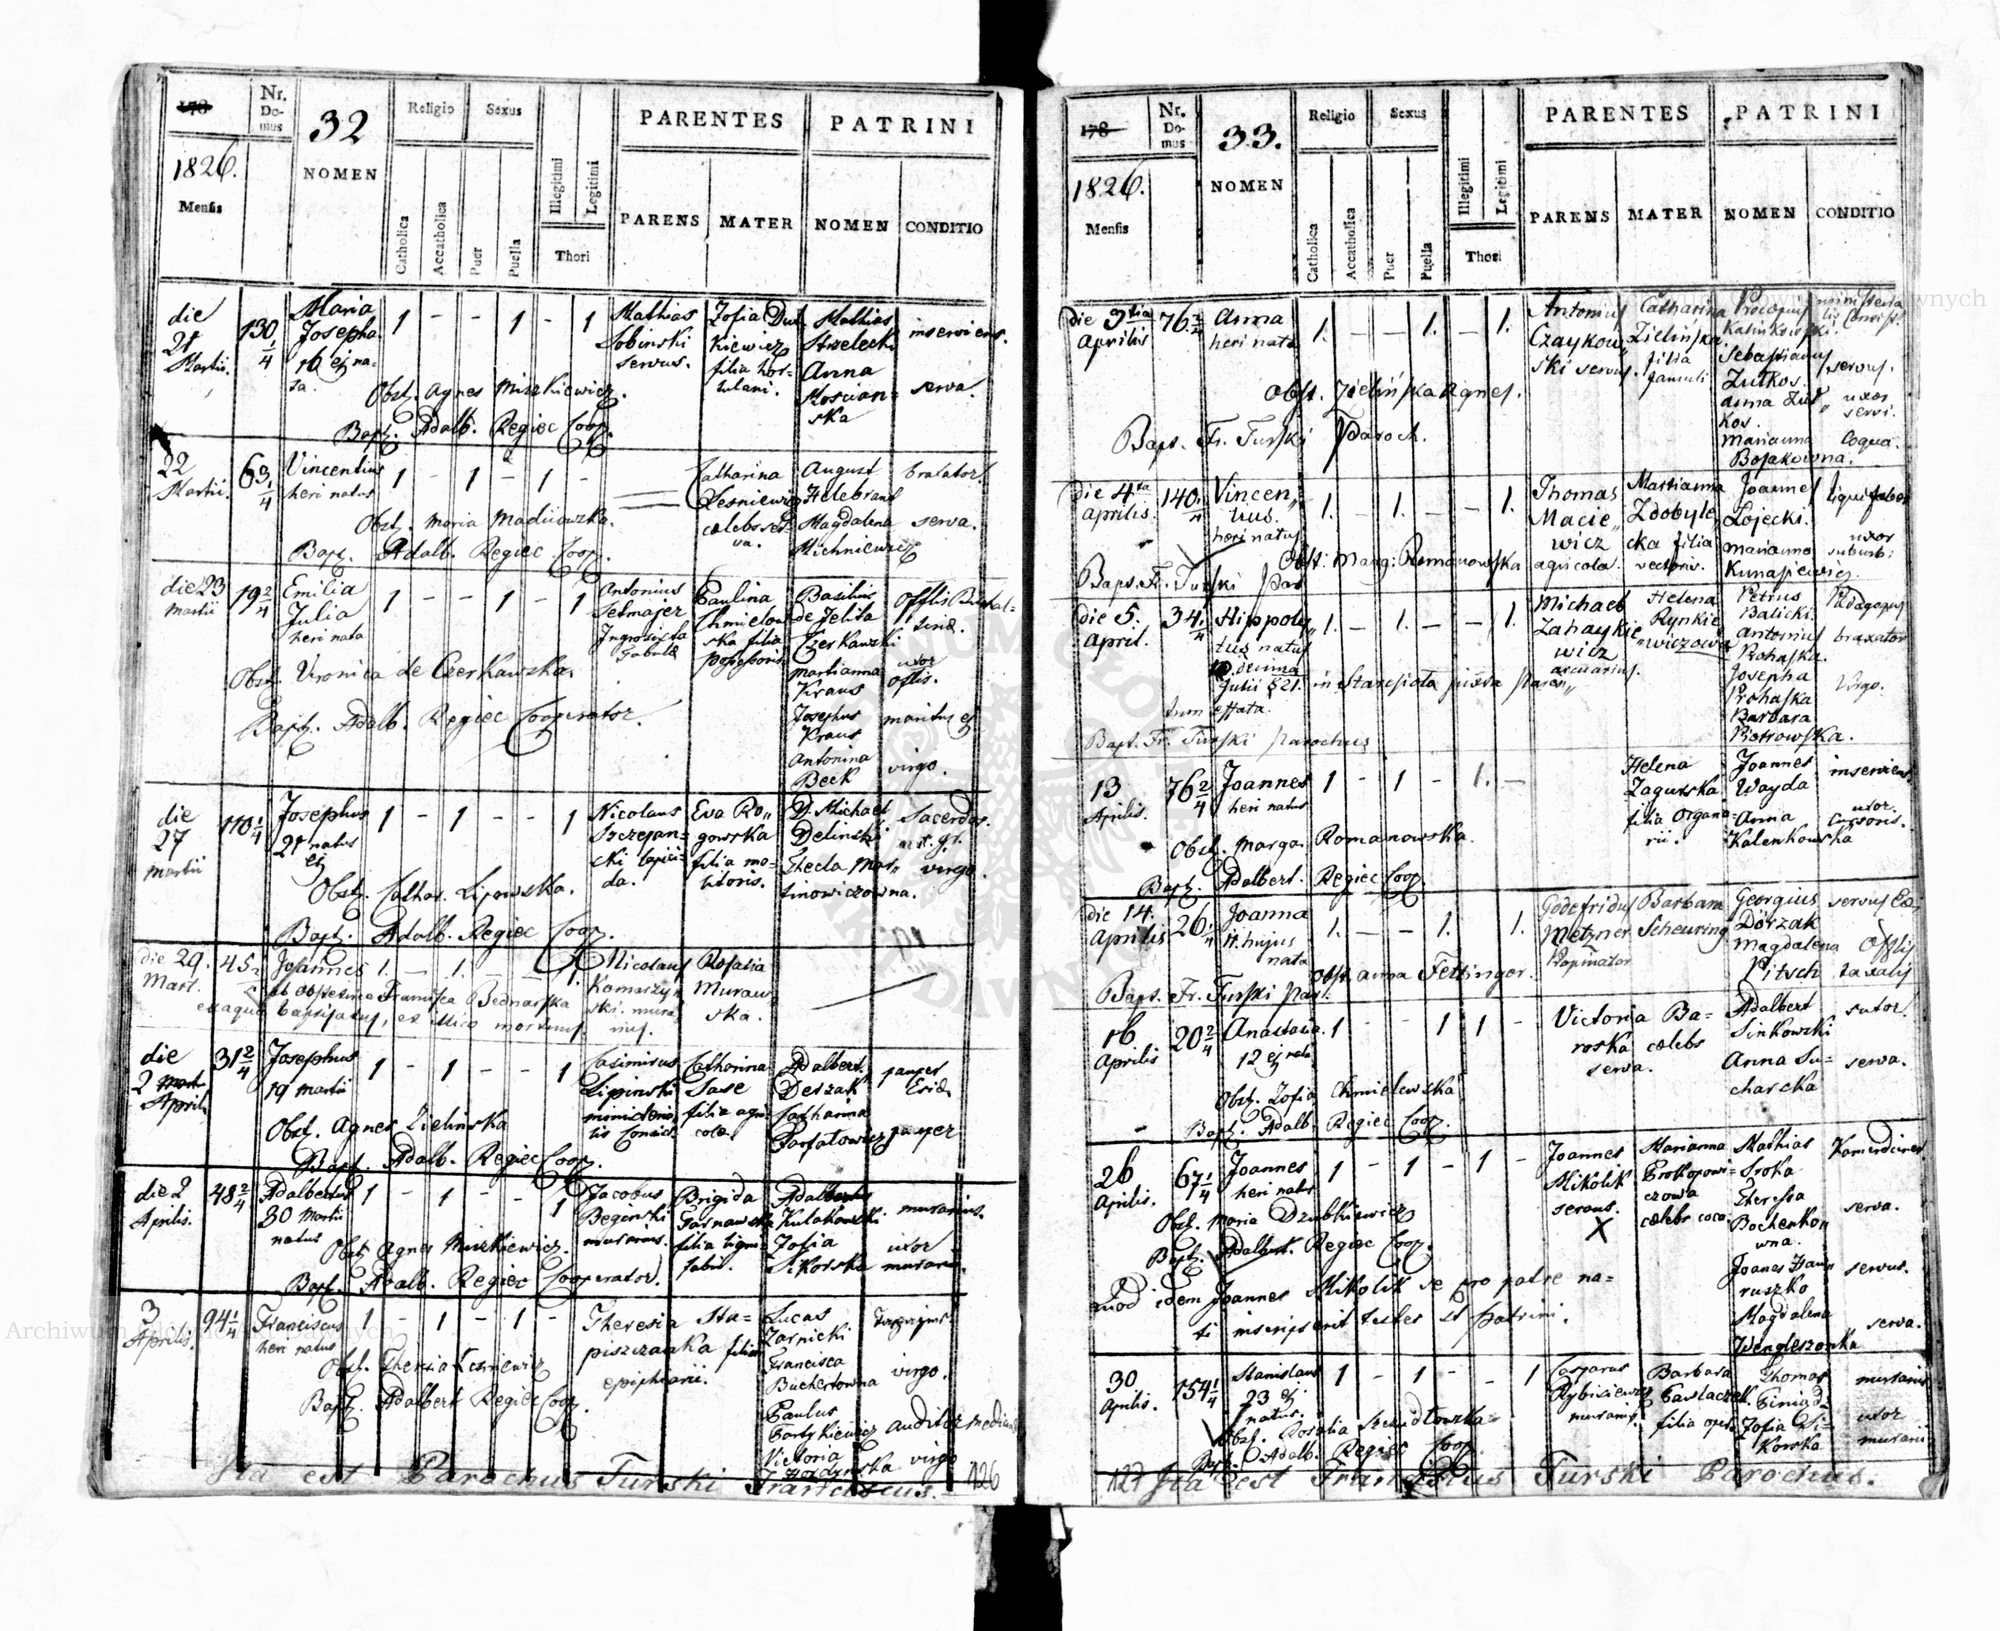 178
Nr. Domus
32
Religio
Sexus
PARENTES
PATRINI
1826.
NOMEN
Mensis
Catholica
Accatholica
Puer
Puella
Illegitimi
Legitimi
Thori
PARENS
MATER
NOMEN
CONDITIO
die 21 Martii.
130 1/4
Maria Josepha 16 ej nasa.
1 - - 1 - 1
Mathias Sobinski servus.
Zofia filia hortulani.
Mathias Strzelecki
inserviens.
Anna Moscianska
serva.
Obst. Agnes Miszkiewicz.
Bapt. Adalb. Regiec Coop.
22 Martii.
63 1/4
Vincentius heri natus
1 - 1 - 1 -
Catharina Lesniewicz caelebs serva.
August Helebrand
braxator.
Magdalena Michniewicz
serva.
Obst. Maria
Bapt. Adalb. Regiec Coop.
die 23 Martii
19 2/4
Emilia Julia heri nata
1 - - 1 - 1
Antonius Selmajer Ingrosista Tabulae
Paulina Chmielowska filia possessoris
Basilius de Jelita Czerkawski
Marianna Kraus
uxor offlis.
Josephus Kraus
maritus ej
Antonina Beck
virgo.
Obst. Vronica de Czerkawska.
Bapt. Adalb. Regiec Cooperator.
die 27 Martii
110 1/4
Josephus 21 natus ej
1 - 1 - - 1
Nicolaus Szczepanski lapicida.
Eva Rogowska filia molitoris.
D. Michael Delinski
Sacerdos. rit. gr.
Thecla Martinowiczowna.
virgo.
Obst. Cathar. Lipowska.
Bapt. Adalb. Regiec Coop.
die 29. Mart.
45
Joannes
1. - 1. - - 1.
Nicolaus Komarzynski. murarius.
Rosalia Murawska.
ab obstetrice Francisca Bednarska
ex aqua baptisatus, et illico mortuus
die 2 Aprilis
31 2/4
Josephus 19 Martii
1 - 1 - - 1
Casimirus Lipinski
Catharina Sase filia agricolae
Adalbert Derzak
pauper
Catharina Parfatowicz
pauper
Obst. Agnes Zielinska
Bapt. Adalb. Regiec Coop.
die 2 Aprilis.
48 2/4
Adalbertus 30 Martii natus
1 - 1 - - 1
Jacobus Begerski murarius.
Brigida Tarnawska filia lignifabri.
Adalbertus Kulakowski
murarius.
Zofia Sikorska
uxor murarii.
Obst. Agnes Miszkiewicz.
Bapt. Adalb. Regiec Cooperator.
3 Aprilis.
94 1/4
Franciscus heri natus
1 - 1 - 1 -
Theresia Stapiszczanka filia
Lucas Zarnicki
Francisca Buchertowna
virgo.
Paulus Bartykiewicz
auditor medic
Victoria
virgo
Obst. Theresia Lesniewicz
Bapt. Adalbert Regiec Coop.
Ita est Parochus Turski Franciscus.
126
178
Nr. Domus
33.
Religio
Sexus
PARENTES
PATRINI
1826.
NOMEN
Mensis
Catholica
Accatholica
Puer
Puella
Illegitimi
Legitimi
Thori
PARENS
MATER
NOMEN
CONDITIO
die 3tia Aprilis
76 2/4
Anna heri nata
1. - - 1. - 1.
Antonius Czaykowski servus.
Catharina Zielińska filia famuli
Procopius Kalinkowski.
Sebastianus Zutkos.
servus.
Anna Zutkos.
uxor servi.
Marianna Bojakowna.
Coqua.
Obst. Zielińska Agnes.
Bapt. Fr. Turski Paroch.
die 4ta Aprilis.
140
Vincentius. heri natus
1. - 1. - - 1.
Thomas Maciewicz agricola.
Marianna Zdobylecka filia vectoris.
Joannes Lojecki.
lignifaber
Marianna Kunasiewicz.
uxor suburb:
Obst: Marg: Romanowska
Bapt. Fr. Turski Par
die 5. April.
34
Hippolytus natus decima Julii 821. in
1. - 1. - - 1.
Michael Zahaykiewicz
Helena Rynkiewiczowa
Petrus Balicki.
Paedagogus
Antonius Prohaska.
braxator
Josepha Prohaska
Virgo.
Barbara Piotrowska.
Bapt. Fr. Turski Parochus
13 Aprilis.
76 2/4
Joannes heri natus
1 - 1 - 1. -
Helena Zagurska filia Organarii.
Joannes Wayda
inserviens.
Anna Kalenkowska
uxor. cursoris.
Obst. Marga. Romanowska.
Bapt. Adalbert. Regiec Coop.
die 14. Aprilis
26
Joanna 11. hujus nata
1. - - 1. - 1.
Godefridus Metzner
Barbara Scheuring
Georgius Dörzak
Magdalena Pitsch
Obst. Anna Fettinger.
Bapt. Fr. Turski Par.
16 Aprilis
20 2/4
Anastasia. 12 ej nata
1 - - 1 1 -
Victoria Baroska caelebs serva.
Adalbert Sinkowski
sutor.
Anna Sucharcka
serva.
Obst. Zofia Chmielewska
Bapt. Adalb. Regiec Coop.
26 Aprilis.
67 1/4
Joannes heri natus
1 - 1 - 1 -
Joannes Mikolik servus. X
Marianna Prokopowiczowa caelebs coca.
Mathias Sroka
Kamerdiener
Theressa Bochenkowna.
serva.
Obst. Maria Dzubkiewicz
Bapt. Adalbert. Regiec Coop.
Joanes Hawruszko
servus.
Magdalena Wengleszonka
serva.
Quod idem Joannes Mikolik se pro patre nati inscripserit testes et patrini.
30 Aprilis.
154 1/4
Stanislaus 23 ej natus.
1 - 1 - - 1
Casparus Rybisiewicz murarius.
Barbara Pawlaczek filia
Thomas
murarius
Zofia Sikorska
uxor murarii
Obst. Rosalia Szkudlowska
Bapt. Adalb. Regiec Coop.
127
Ita est Franciscus Turski Parochus.
Archiwum Główne Akt Dawnych